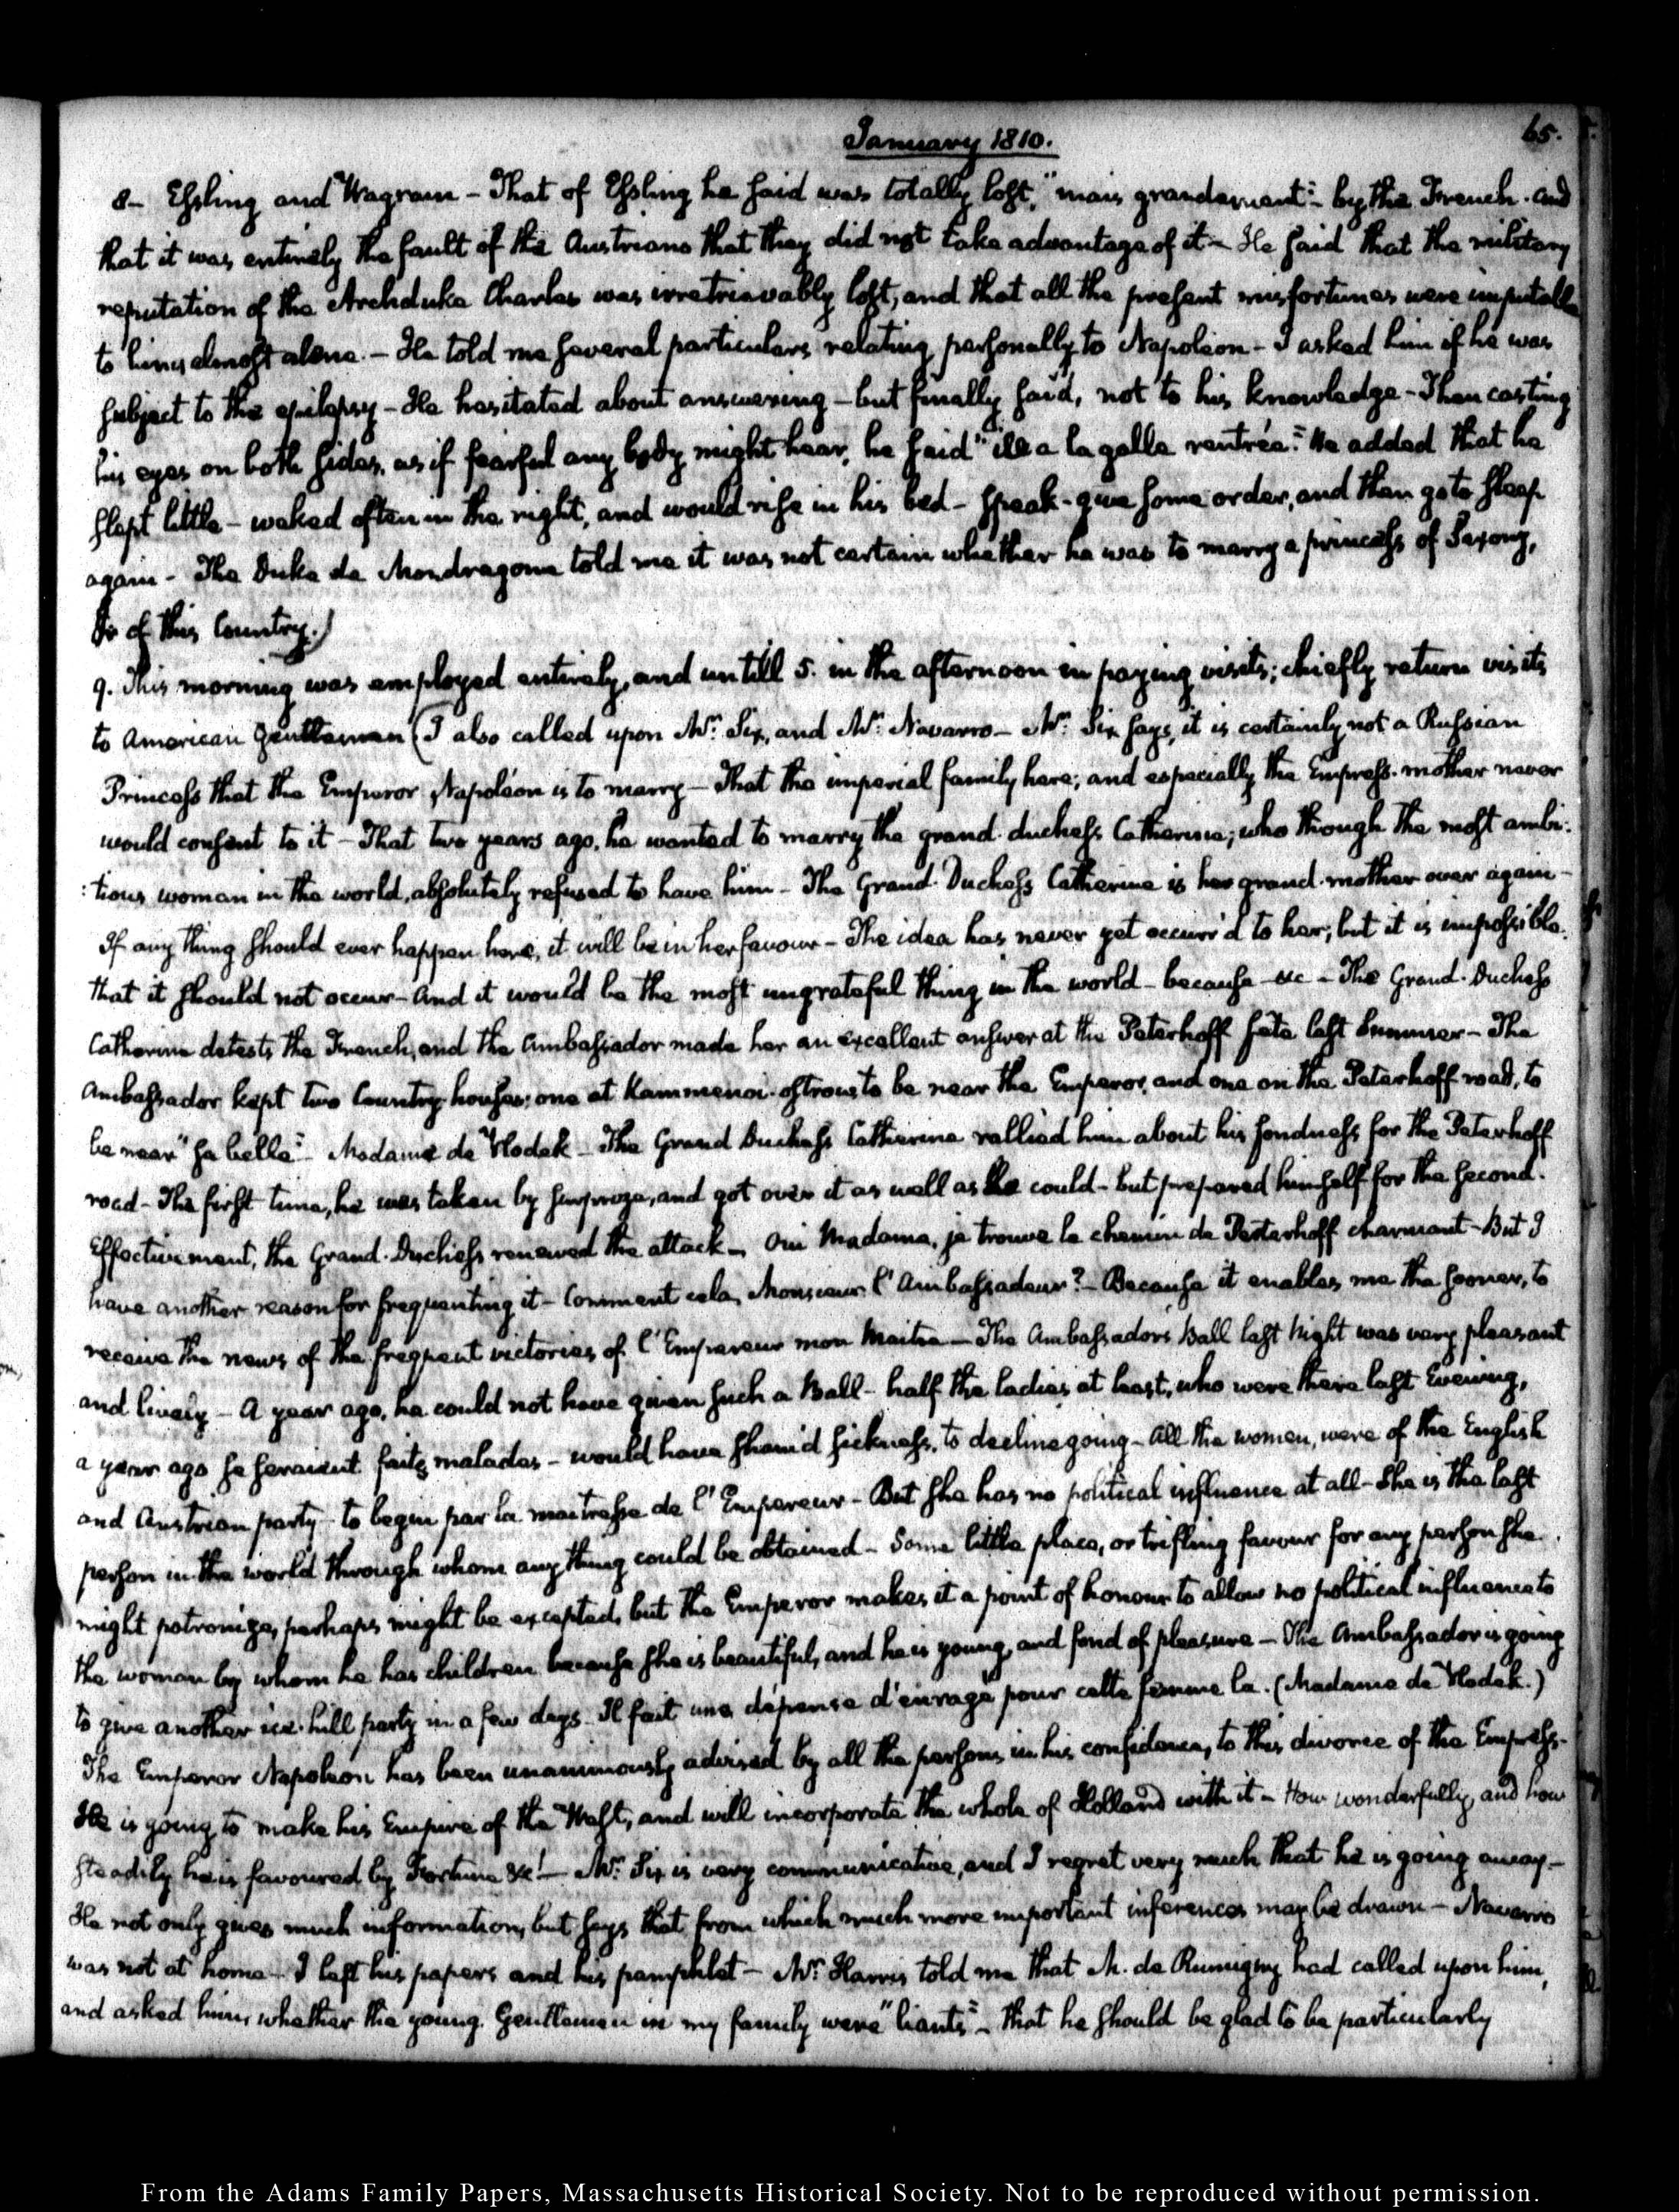 January 1810.
65.
8— Essling and Wagram — That of Essling he said was totally lost, "mais grandement" — by the French. And
that it was entirely the fault of the Austrians that they did not take advantage of it — He said that the military
reputation of the Archduke Charles was irretrievably lost, and that all the present misfortunes were imputable
to him almost alone. — He told me several particulars relating personally to Napoleon — I asked him if he was
subject to the epilepsy — He hesitated about answering — but finally said, not to his knowledge — Then casting
his eyes on both sides, as if fearful any body might hear, he said "il a la galle rentrée." He added that he
slept little — waked often in the night, and would rise in his bed — speak — give some order, and then go to sleep
again — The Duke de Mondragone told me it was not certain whether he was to marry a princess of Saxony,
or of this Country.)
9. This morning was employed entirely, and untill 5. in the afternoon in paying visits; chiefly return visits
to American Gentlemen (I also called upon Mr. Six, and Mr. Navarro — Mr. Six says, it is certainly not a Russian
Princess that the Emperor Napoléon is to marry — That the imperial family here; and especially the Empress-mother never
would consent to it — That two years ago, he wanted to marry the grand-duchess Catherine; who though the most ambi:
:tious woman in the world, absolutely refused to have him — The Grand-Duchess Catherine is her grand-mother over again —
If any thing should ever happen here, it will be in her favour — The idea has never yet occurr'd to her; but it is impossible
that it should not occur — And it would be the most ungrateful thing in the world — because &c — The Grand-Duchess
Catherine detests the French, and the Ambassador made her an excellent answer at the Peterhoff fete last Summer — The
Ambassador kept two Country-houses; one at Kammenoi-ostrow to be near the Emperor, and one on the Peterhoff road, to
be near "sa belle" — Madame de Vlodek — The Grand Duchess Catherine rallied him about his fondness for the Peterhoff
road — The first time, he was taken by surprize, and got over it as well as he could — but prepared himself for the second.
Effectivement, the Grand-Duchess renewed the attack — Oui Madame, je trouve le chemin de Peterhoff charmant — But I
have another reason for frequenting it — Comment cela, Monsieur l'Ambassadeur? — Because it enables me the sooner, to
receive the news of the frequent victories of l'Empereur mon Maitre — The Ambassador's Ball last night was very pleasant
and lively — A year ago, he could not have given such a Ball — half the ladies at least, who were there last Evening,
a year ago se seraient faites malades — would have sham'd sickness, to decline going — All the women, were of the English
and Austrian party — to begin par la maitresse de l'Empereur — But she has no political influence at all — She is the last
person in the world through whom any thing could be obtained — Some little place, or trifling favour for any person she
might patronize, perhaps might be excepted, but the Emperor makes it a point of honour to allow no political influence to
the woman by whom he has children because she is beautiful, and he is young, and fond of pleasure — The Ambassador is going
to give another ice-hill party in a few days — Il fait une dépense d'enragé pour cette femme la. (Madame de Vlodek.)
The Emperor Napoleon has been unanimously advised by all the persons in his confidence, to this divorce of the Empress —
He is going to make his Empire of the West, and will incorporate the whole of Holland with it — How wonderfully, and how
steadily he is favoured by Fortune &c! — Mr. Six is very communicative, and I regret very much that he is going away —
He not only gives much information, but says that from which much more important inferences may be drawn — Navarro
was not at home — I left his papers and his pamphlet — Mr. Harris told me that M. de Rumigny had called upon him,
and asked him, whether the young Gentlemen in my family were "liants" — that he should be glad to be particularly
From the Adams Family Papers, Massachusetts Historical Society. Not to be reproduced without permission.